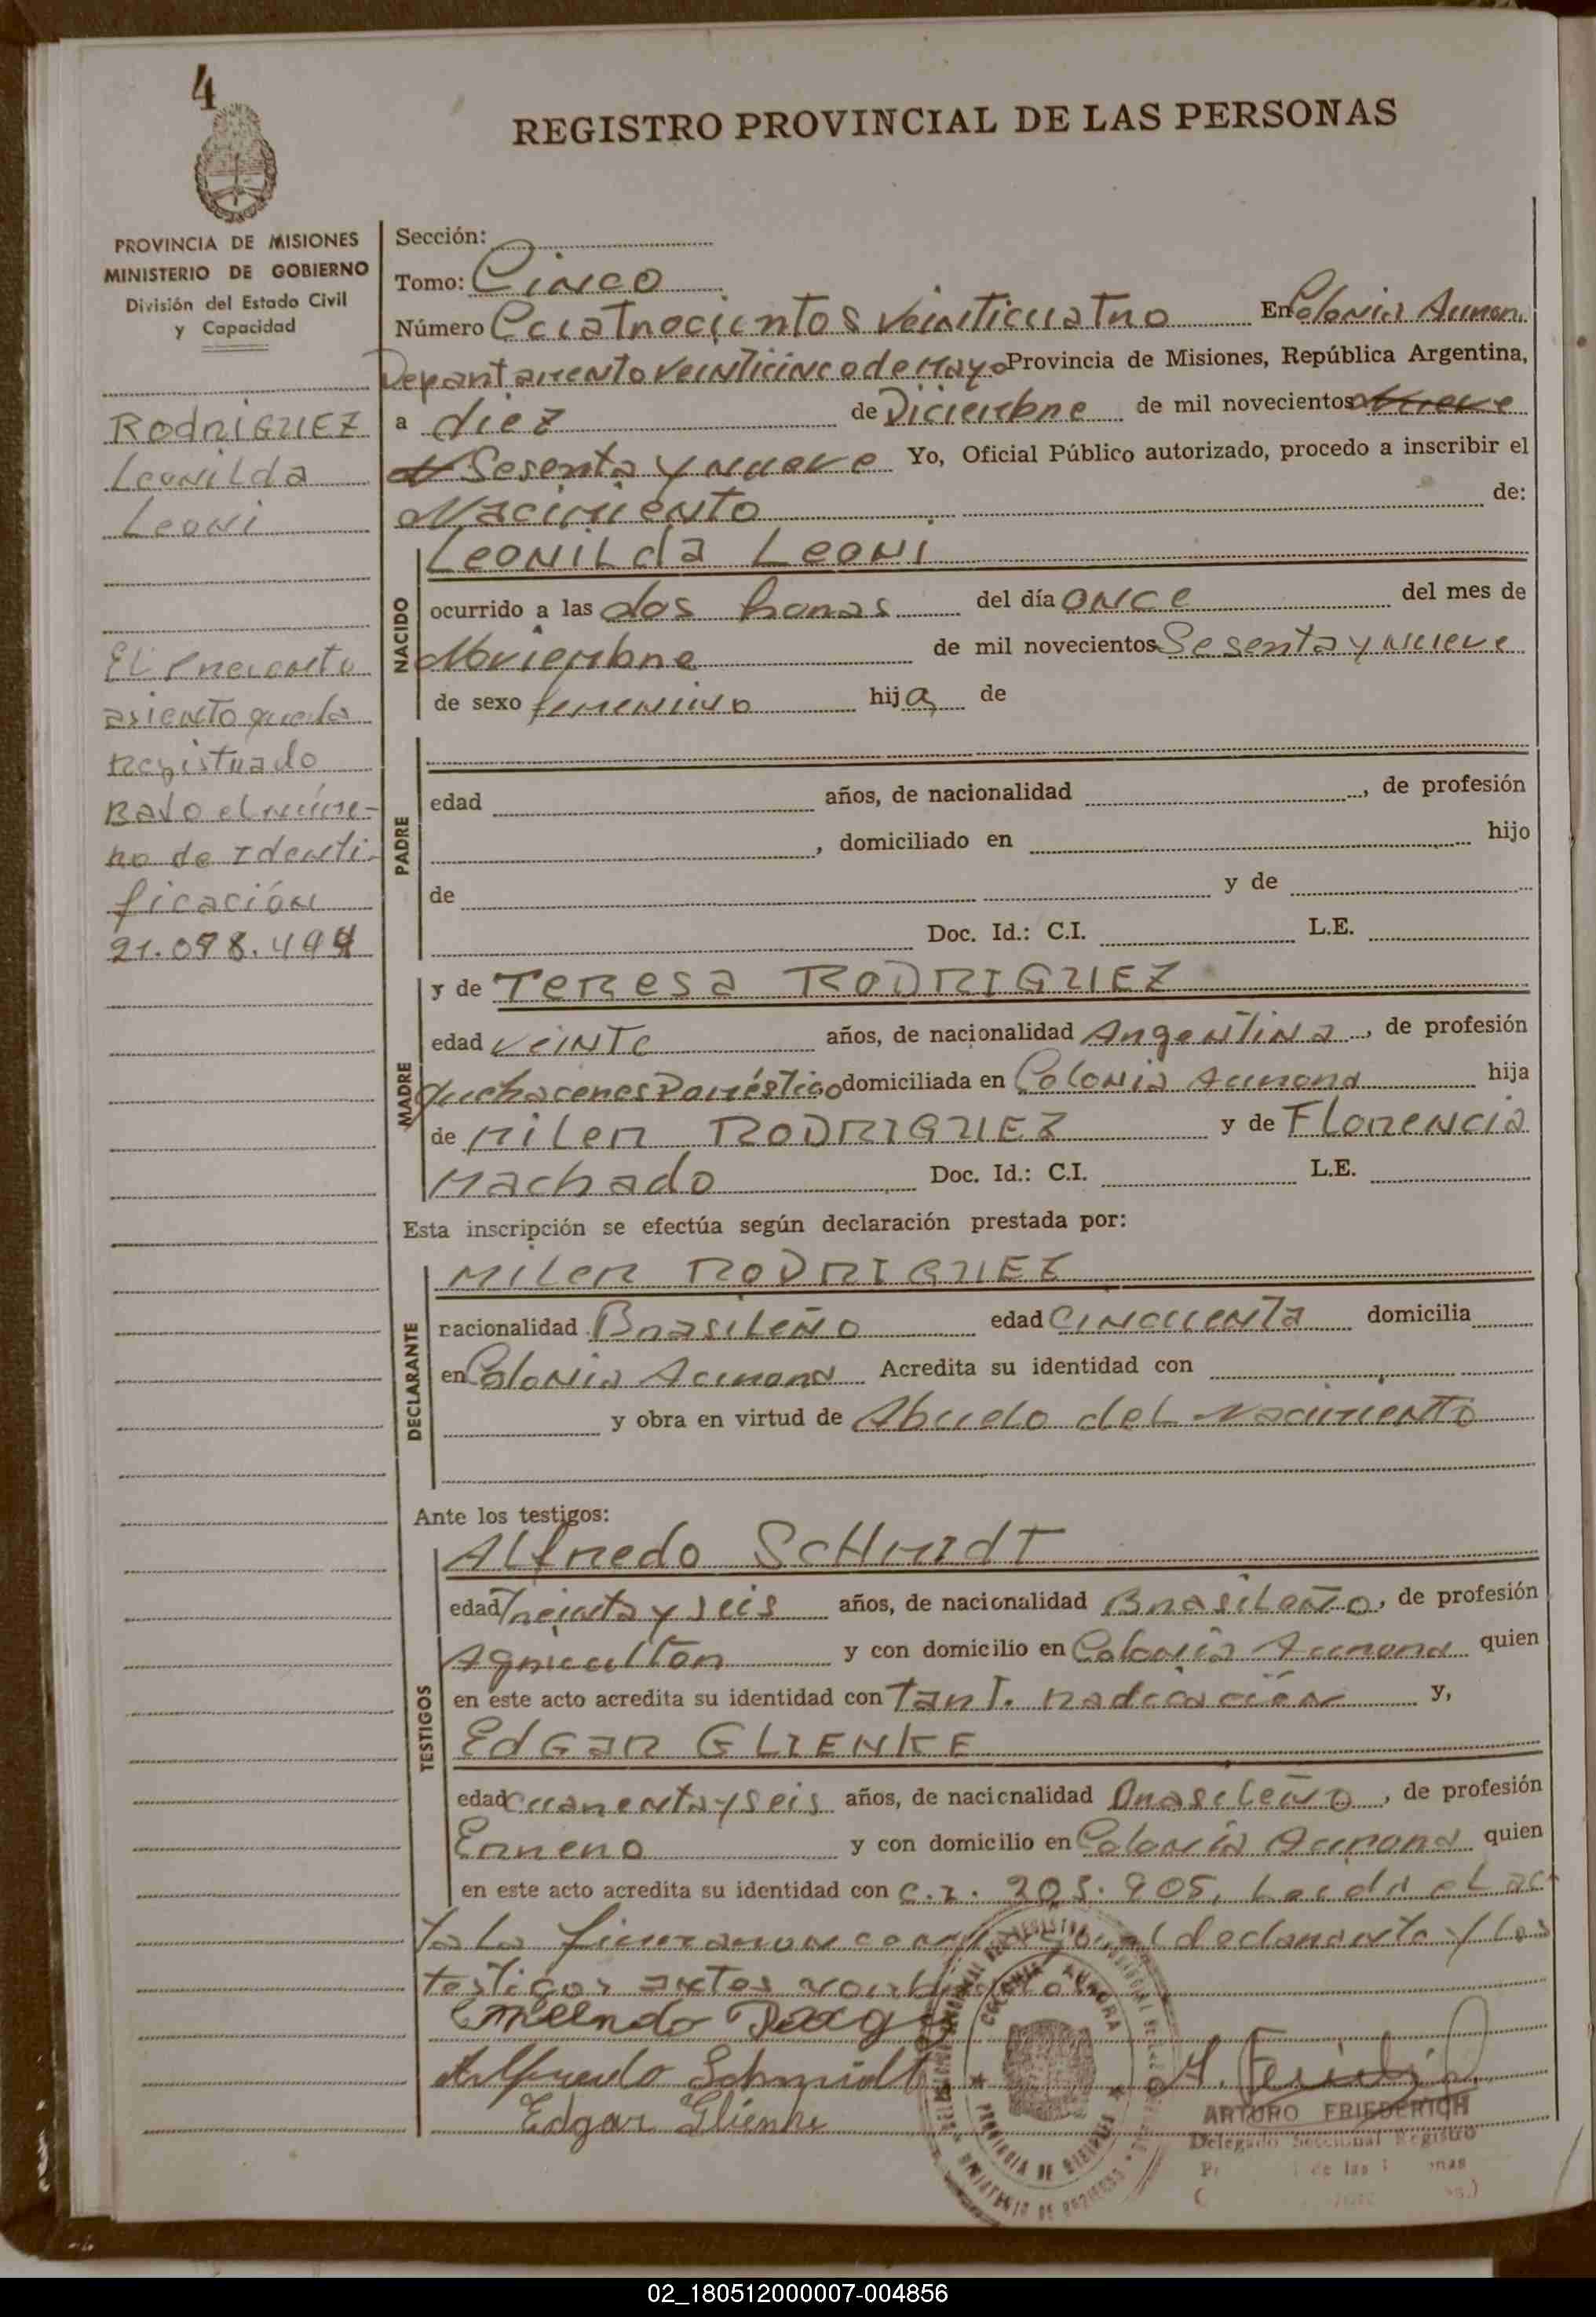 4
REGISTRO PROVINCIAL DE LAS PERSONAS
PROVINCIA DE MISIONES
MINISTERIO DE GOBIERNO
División del Estado Civil
y Capacidad
RodRIGUEZ
Leonilda
Leoni
El Presente
asiento queda
Registrado
Bajo el núme-
ro de Identi-
ficación
21.098.494
Sección:
Tomo: Cinco
Número Cuatrocientos Veinticuatro En Colonia Auror.
Departamento Veinticinco de Mayo Provincia de Misiones, República Argentina,
a diez de Diciembre de mil novecientos
Sesenta y nueve Yo, Oficial Público autorizado, procedo a inscribir el
Nacimiento de:
Leonilda Leoni
NACIDO
ocurrido a las dos horas del día once del mes de
Noviembre de mil novecientos Sesenta y nueve
de sexo femenino hija de
PADRE
edad años, de nacionalidad , de profesión
, domiciliado en hijo
de y de
Doc. Id.: C.I. L.E.
MADRE
y de Teresa RODRIGUEZ
edad veinte años, de nacionalidad Argentina, de profesión
Quehaceres Doméstico domiciliada en Colonia Aurora hija
de Miler RODRIGUEZ y de Florencia
Machado Doc. Id.: C.I. L.E.
Esta inscripción se efectúa según declaración prestada por:
DECLARANTE
Miler RODRIGUEZ
nacionalidad Brasileño edad cincuenta domicilia
en Colonia Aurora Acredita su identidad con
y obra en virtud de Abuelo del Nacimiento
Ante los testigos:
TESTIGOS
Alfredo Schmidt
edad Treinta y seis años, de nacionalidad Brasileño, de profesión
Agricultor y con domicilio en Colonia Aurora quien
en este acto acredita su identidad con Tarj. radicación y,
EdGaR GLIENKE
edad cuarenta y seis años, de nacionalidad Brasileño, de profesión
Errero y con domicilio en Colonia Aurora quien
en este acto acredita su identidad con C.I. 205.905, Leida el ac
ta la firmaron el declarante y los
testigos antes
Alfredo Schmidt
Edgar Glienke
COLONIA AURORA
PROVINCIA DE MISIONES
MINISTERIO DE GOBIERNO
ARTURO FRIEDERICH
Delegado Seccional Registro
02_180512000007-004856